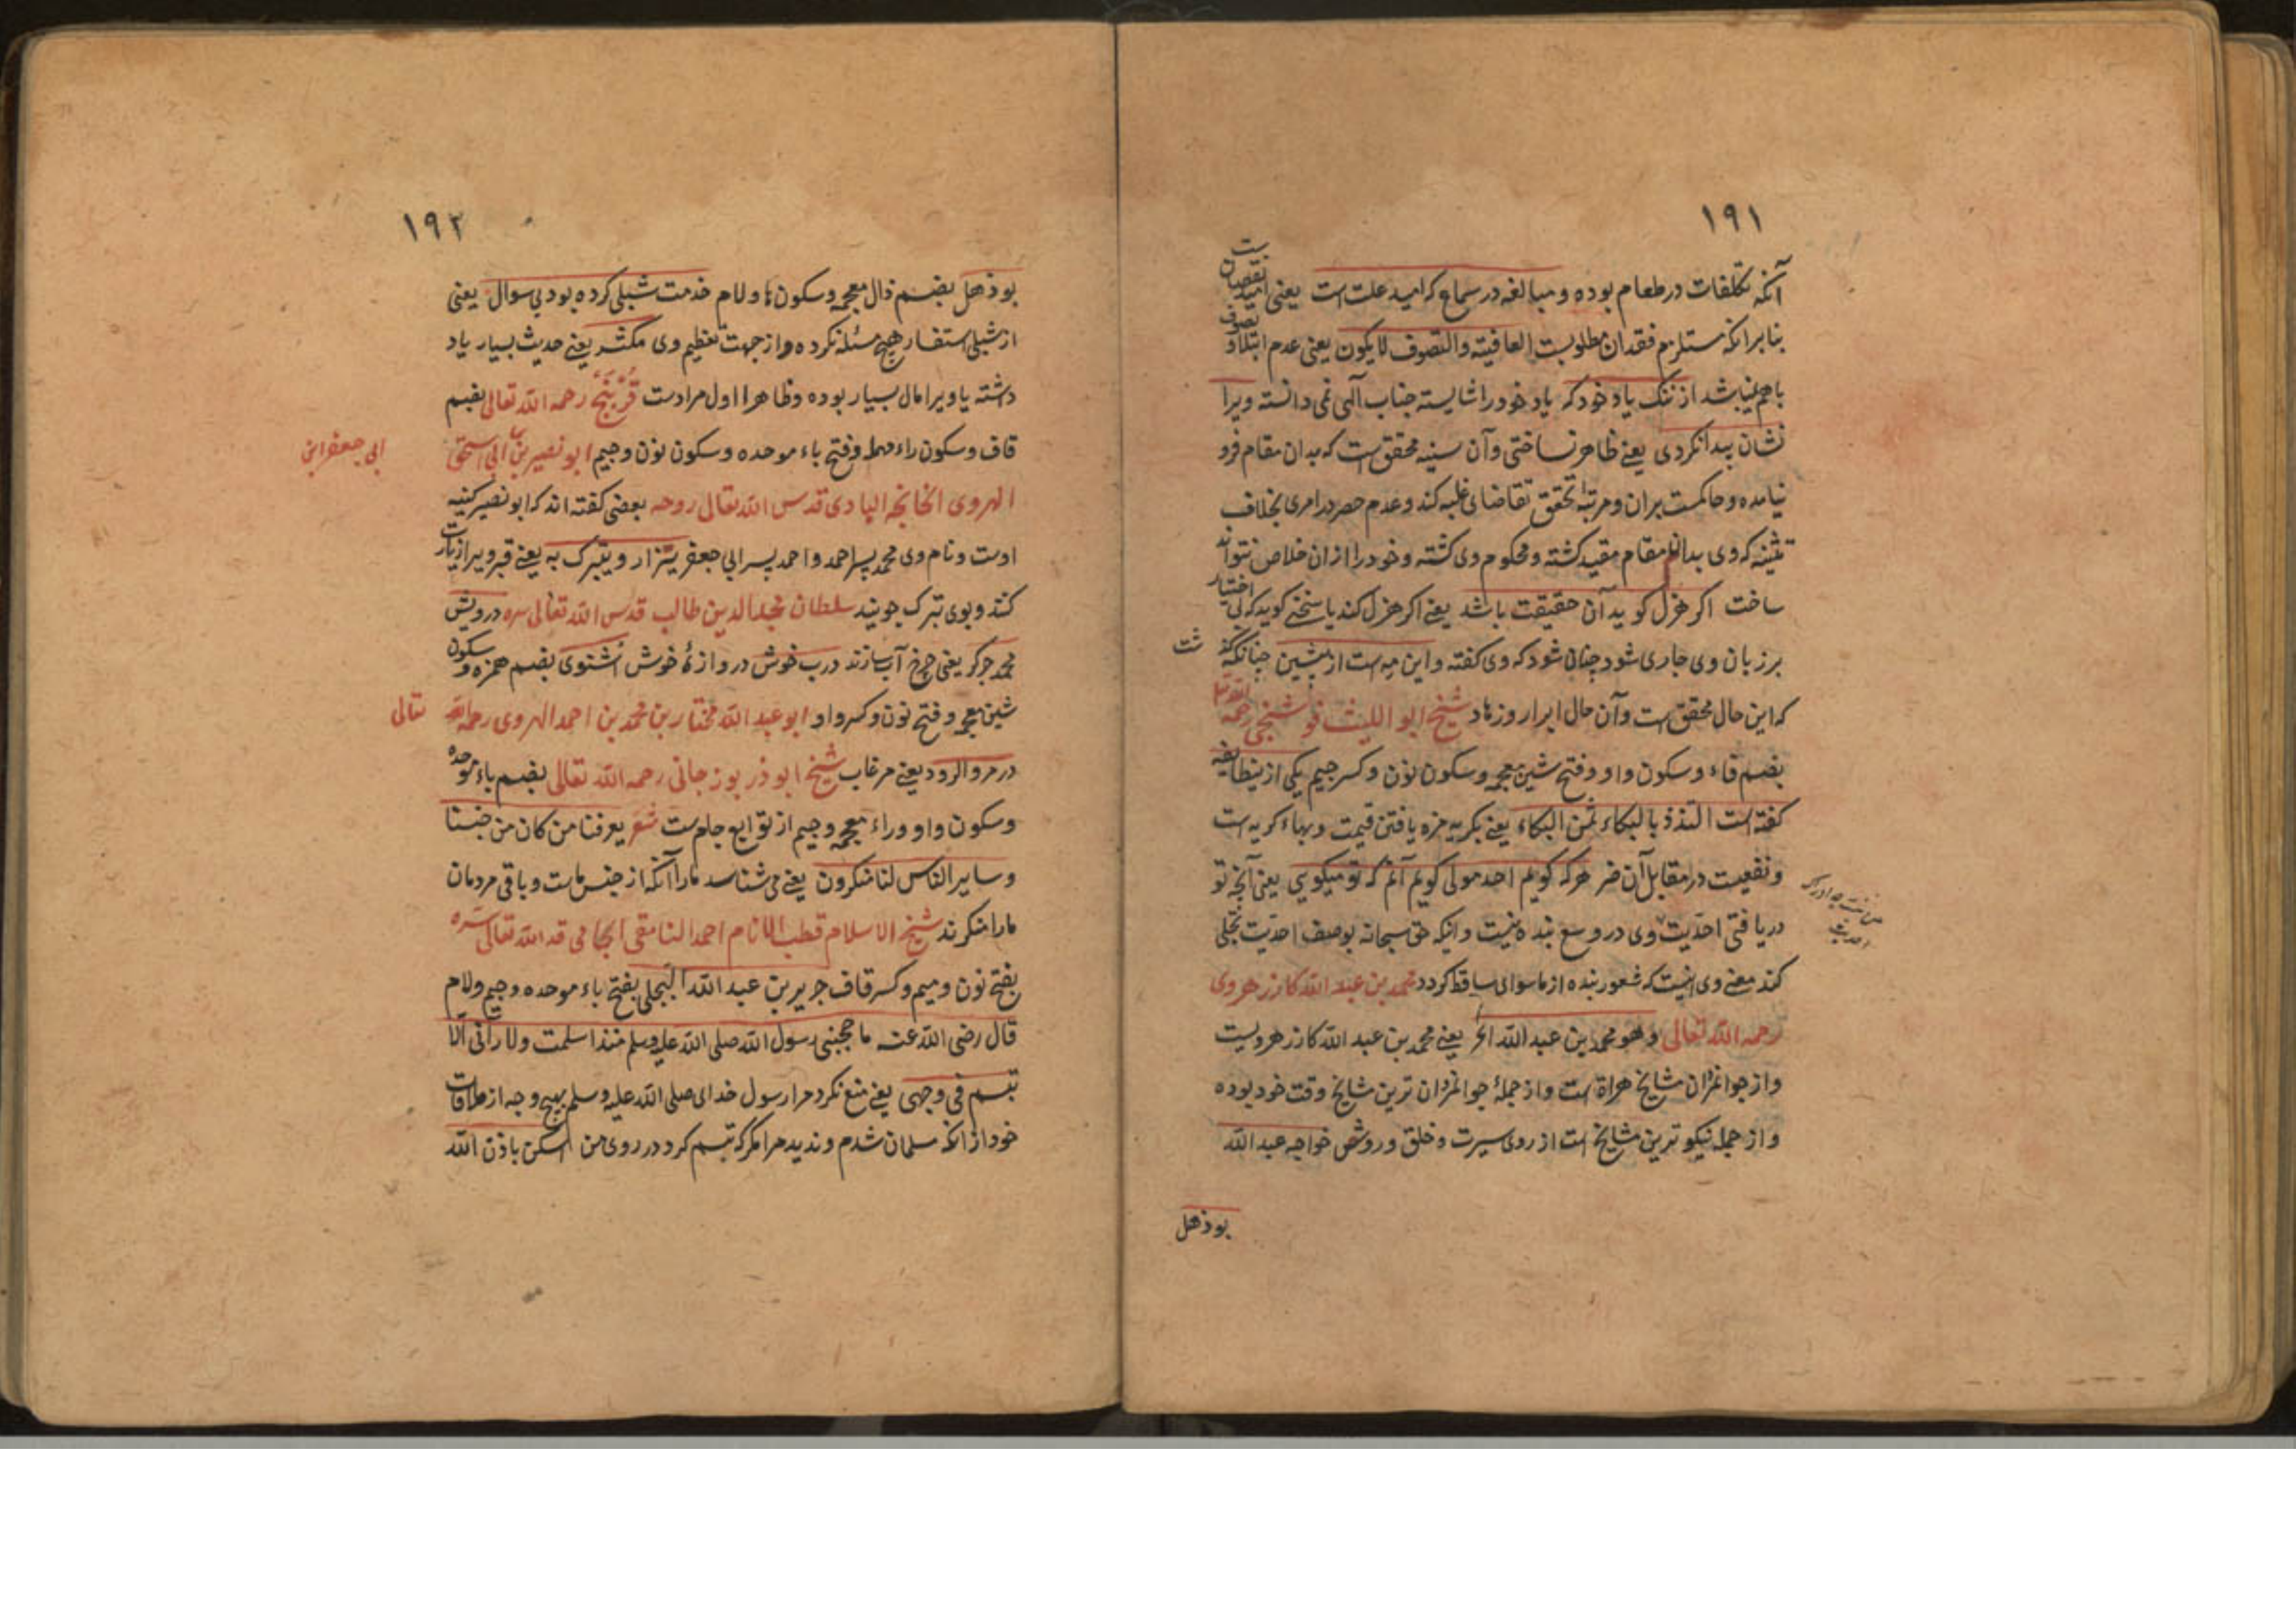 ۱۹۱
آنکه تکلفات در طعام بوده و مبالغه در سماع که امید علت است یعنی امید نقصان است
بنابر انکه مستلزم فقدان مطلوبست العافیته والتصوف لا یکون یعنی عدم ابتلا و تصوف
باهم نمیباشد از ننک یاد خود که یاد خود را شایسته جناب آلهی نمی دانسته ویرا
نشان پیدا نکردی یعنی ظاهر نساختی وآن سینه محقق است که بدان مقام فرو
نیامده و حاکمست بران و مرتبه تحقق تقاضای غلبه کند و عدم حصر در امری بخلاف
که وی بدان مقام مقید کشته و محکوم وی کشته و خود را ازان خلاص نتواند
ساخت اکر هزل کوید آن حقیقت باشد یعنی اکر هزل کند یا سخنی کوید که بی اختیار
بر زبان وی جاری شود چنان شود که وی کفته و این مه است از پیشین چنانکه
که این حال محقق است وآن حال ابرار و زهاد شیخ ابو اللیث فوشنجی رحمه الله تعالی
بضم فاء و سکون واو و فتح شین معجمه و سکون نون و کسر جیم یکی ازینطایفه
کفته است التلذذ بالبکاء ثمن البکاء یعنی بکریه مزه یافتن قیمت و بهاء کریه است
و نفعیست در مقابل آن ضر هرکه کویم احد مولی کویم آنم که تو میکویی یعنی آنچه تو
دریافتی احدیت وی در وسع بنده نیست و انیکه حق سبحانه بوصف احدیت تجلی
کند معنی وی اینست که شعور بنده از ماسوای ساقط کردد محمد بن عبد الله کازر هروی
رحمه الله تعالی وهو محمد بن عبد الله الخ یعنی محمد بن عبد الله کازر هرویست
و از جوانمردان مشایخ هراة است و از جملهٔ جوانمردان ترین مشایخ وقت خود بوده
و از جمله نیکو ترین مشایخ است از روی سیرت و خلق و روش خواجه عبد الله
بوذهل
۱۹۲
بوذهل بضم ذال معجمه و سکون ها و لام خدمت شبلی کرده بود بی سوال یعنی
از شبلی استفسار هیچ مسئله نکرده و از جهت تعظیم وی مکثر یعنی حدیث بسیار یاد
داشته یا ویرا مال بسیار بوده و ظاهرا اول مرادست قُرْبَنج رحمه الله تعالی بضم
قاف و سکون راء مهمله و فتح باء موحده و سکون نون و جیم ابو نصیر بن ابی اسحق
ابی جعفر ابن
الهروی الخانچه البادی قدس الله تعالی روحه بعضی کفته اند که ابو نصیر کنیه
اوست و نام وی محمد پسر احمد و احمد پسر ابی جعفر یتزار و یتبرک به یعنی قبر ویرا زیارت
کنند و بوی تبرک جویند سلطان مجد الدین طالب قدس الله تعالی سره درویش
محمد جرکر یعنی چرخ آب سازند درب خوش دروازهٔ خوش اُشنوی بضم همزه و سکون
شین معجمه و فتح نون و کسر واو ابو عبد الله مختار بن محمد بن احمد الهروی رحمه الله تعالی
در مرو الرود یعنی مرغاب شیخ ابو ذر بوزجانی رحمه الله تعالی بضم باء موحده
و سکون واو و راء معجمه و جیم از توابع جام ست شعر یعرفنا من کان من جنسنا
و سایر الناس لنا منکرون یعنی می شناسد مارا آنکه از جنس ماست و باقی مردمان
مارا منکرند شیخ الاسلام قطب الانام احمد النامقی الجامی قد الله تعالی سره
بفتح نون و میم و کسر قاف جریر بن عبد الله البجلی بفتح باء موحده و جیم و لام
قال رضی الله عنه ما حجبنی رسول الله صلی الله علیه وسلم منذ اسلمت ولا رآنی الا
تبسم فی وجهی یعنی منع نکرد مرا رسول خدای صلی الله علیه وسلم بهیچ وجه از ملاقات
خود از انکه مسلمان شدم و ندید مرا مکر که تبسم کرد در روی من اسکن باذن الله